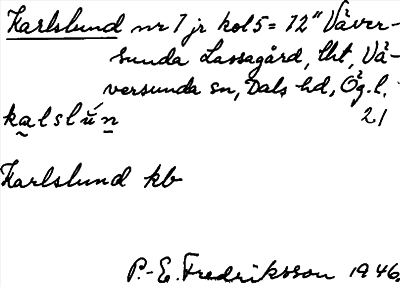 Karlslund nr 1 jr kol 5 = 12" Väver-
sunda Lassagård, lht, Vä-
versunda sn, Dals hd, Ög. l.
kalslún 21
Karlslund kb
P.-E. Fredriksson 1946